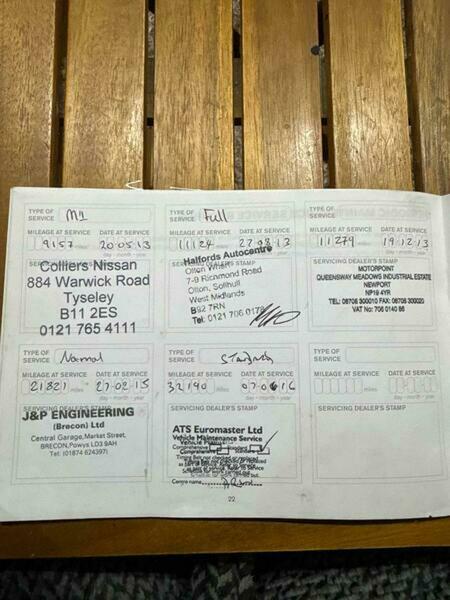 TYPE OF SERVICE M1
MILEAGE AT SERVICE DATE AT SERVICE
9157 miles 20 05 13
day - month - year
SERVICING DEALER'S STAMP
Colliers Nissan
884 Warwick Road
Tyseley
B11 2ES
0121 765 4111
TYPE OF SERVICE Full
MILEAGE AT SERVICE DATE AT SERVICE
11124 miles 27 08 13
Halfords Autocentre
Olton Wharf
7-9 Richmond Road
Olton, Solihull
West Midlands
B92 7RN
Tel: 0121 706
TYPE OF SERVICE
MILEAGE AT SERVICE DATE AT SERVICE
11279 miles 19 12 13
day - month - year
SERVICING DEALER'S STAMP
MOTORPOINT
QUEENSWAY MEADOWS INDUSTRIAL ESTATE
NEWPORT
NP19 4YR
TEL: 08708 300010 FAX: 08708 300020
VAT No: 706 0140 86
TYPE OF SERVICE Normal
MILEAGE AT SERVICE DATE AT SERVICE
21821 miles 27 02 15
day - month - year
SERVICING DEALER'S STAMP
J&P ENGINEERING
(Brecon) Ltd
Central Garage, Market Street,
BRECON, Powys LD3 9AH
Tel: (01874 624397)
TYPE OF SERVICE Standard
MILEAGE AT SERVICE DATE AT SERVICE
32190 miles 07 06 16
day - month - year
SERVICING DEALER'S STAMP
ATS Euromaster Ltd
Vehicle Maintenance Service
Comprehensive Standard
Centre name
TYPE OF SERVICE
MILEAGE AT SERVICE DATE AT SERVICE
miles
day - month - year
SERVICING DEALER'S STAMP
22